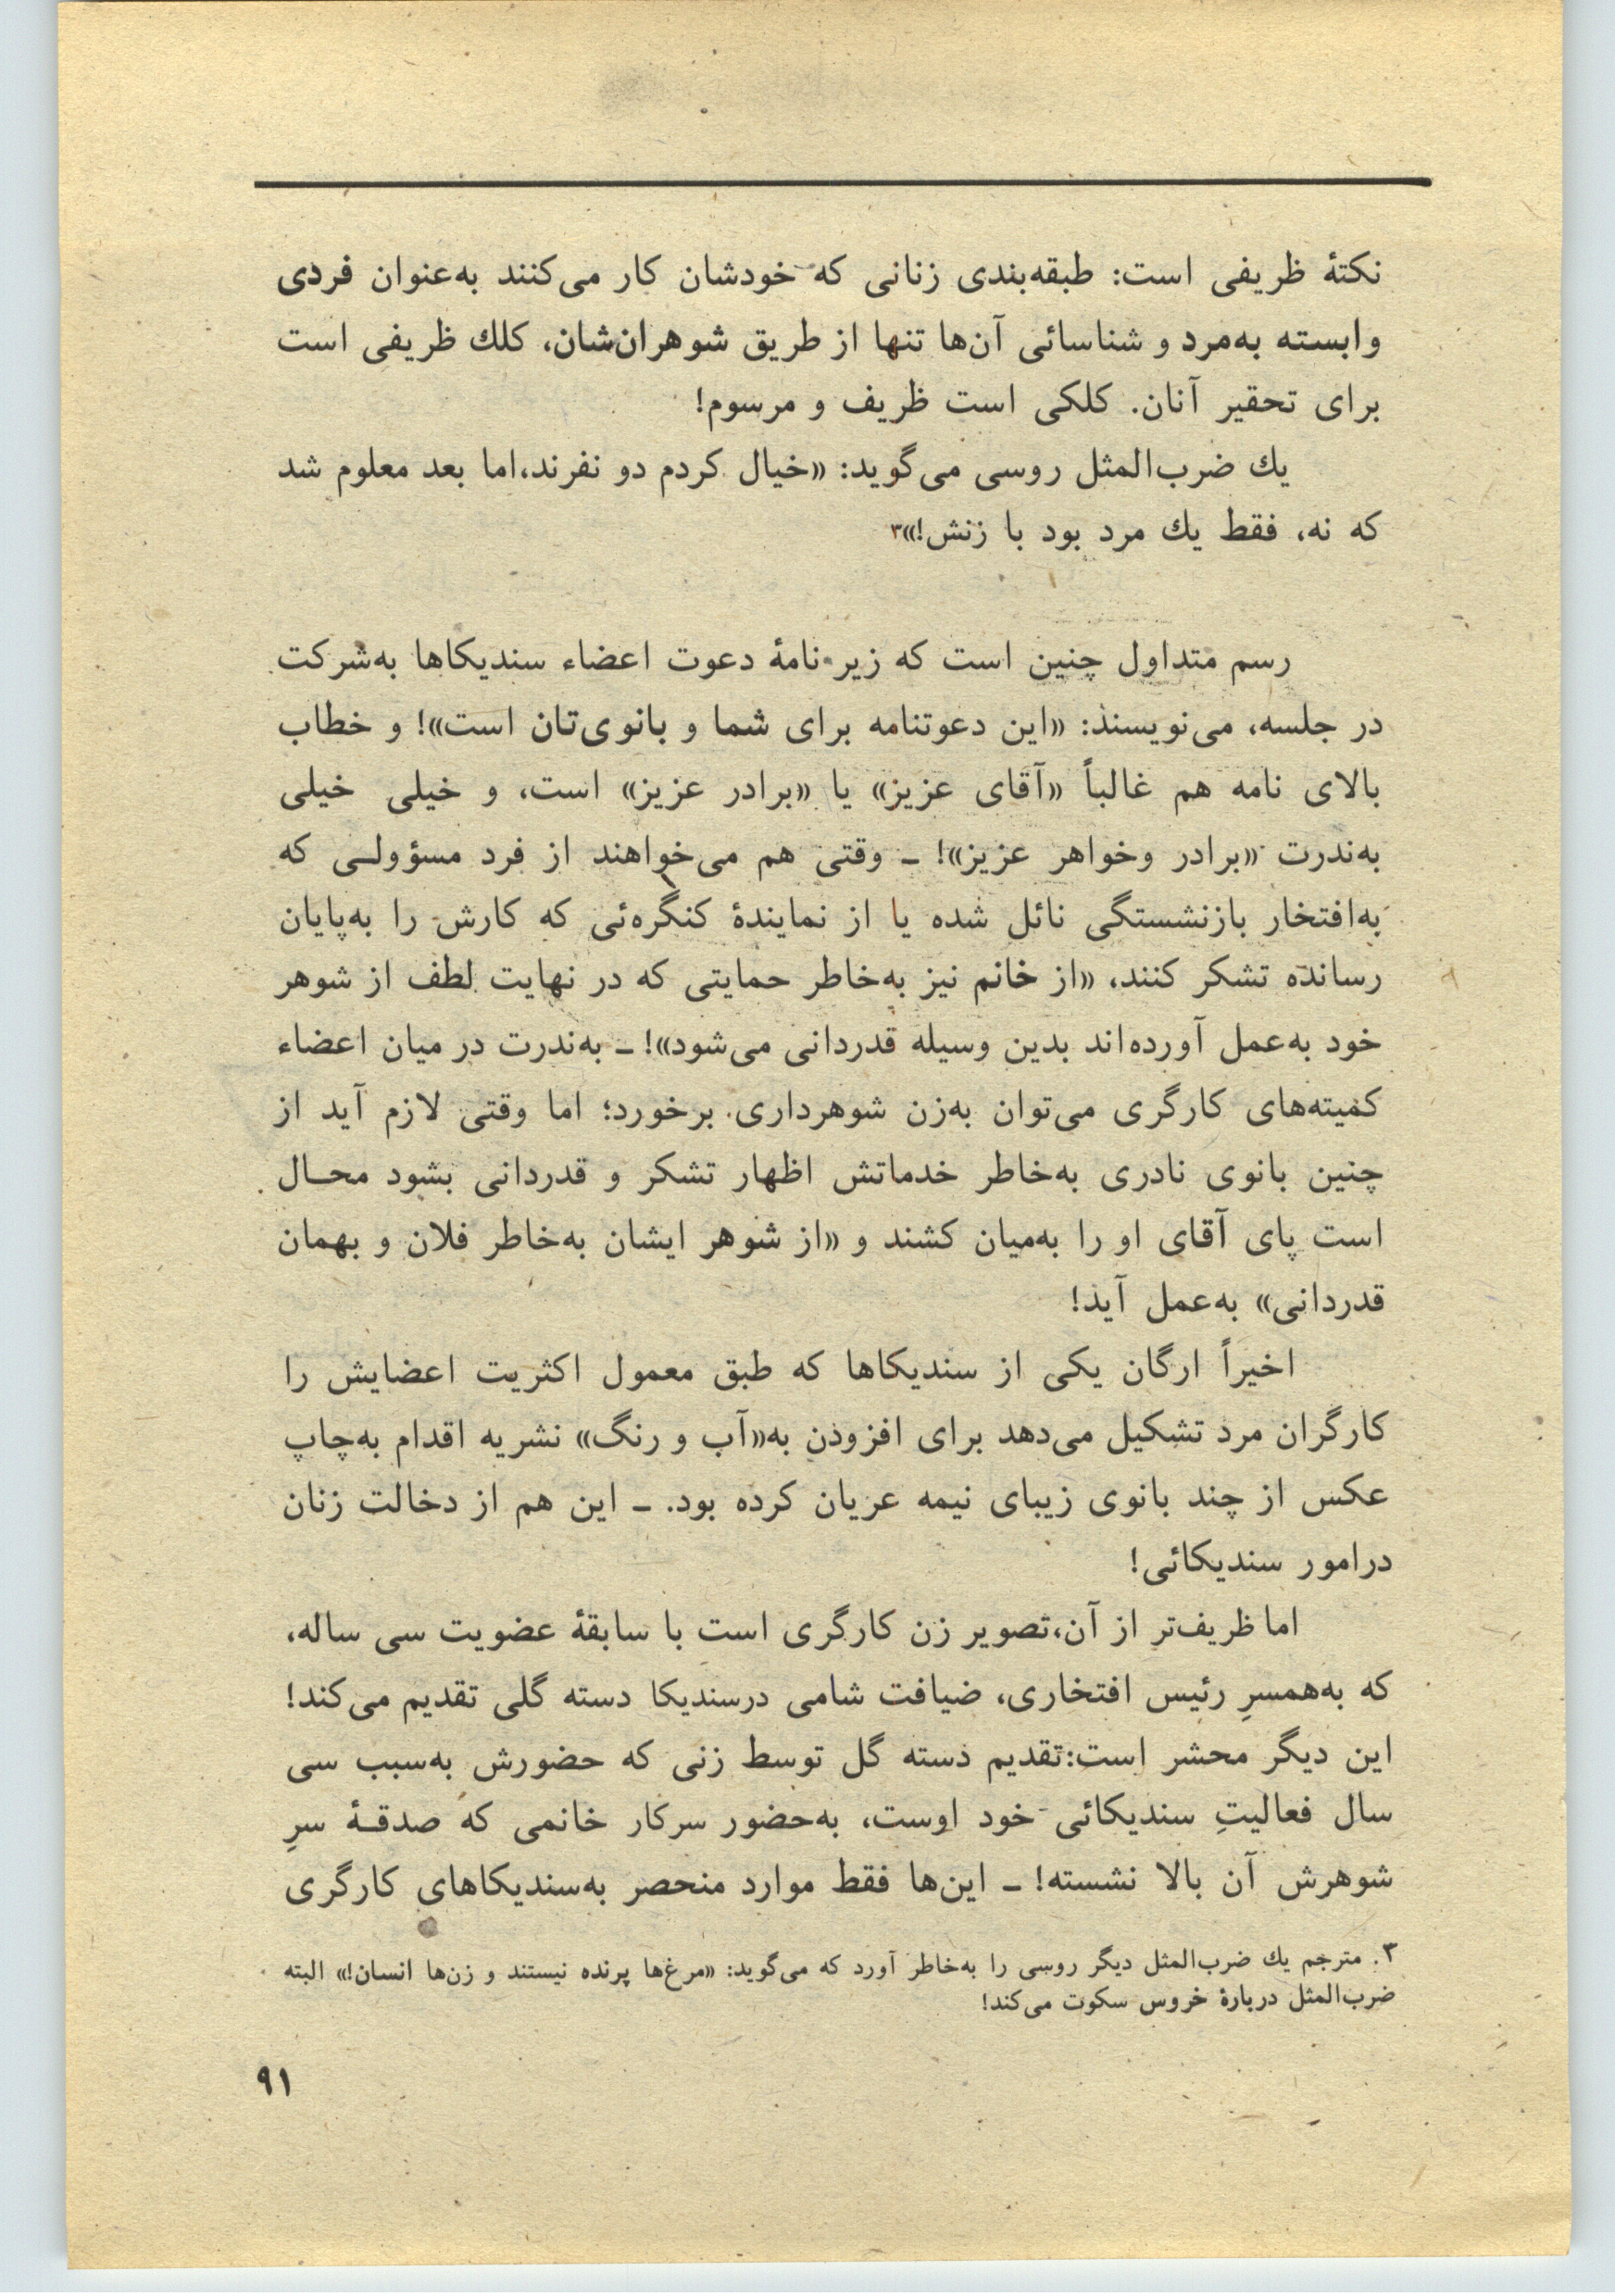 نکتهٔ ظریفی است: طبقه‌بندی زنانی که خودشان کار می‌کنند به‌عنوان فردی
وابسته به‌مرد و شناسائی آن‌ها تنها از طریق شوهران‌شان، کلك ظریفی است
برای تحقیر آنان. کلکی است ظریف و مرسوم!
یك ضرب‌المثل روسی می‌گوید: «خیال کردم دو نفرند،اما بعد معلوم شد
که نه، فقط یك مرد بود با زنش!»۳
رسم متداول چنین است که زیر نامهٔ دعوت اعضاء سندیکاها به‌شرکت
در جلسه، می‌نویسند: «این دعوتنامه برای شما و بانوی‌تان است»! و خطاب
بالای نامه هم غالباً «آقای عزیز» یا «برادر عزیز» است، و خیلی خیلی
به‌ندرت «برادر وخواهر عزیز»! ـ وقتی هم می‌خواهند از فرد مسؤولـی که
به‌افتخار بازنشستگی نائل شده یا از نمایندهٔ کنگره‌ئی که کارش را به‌پایان
رسانده تشکر کنند، «از خانم نیز به‌خاطر حمایتی که در نهایت لطف از شوهر
خود به‌عمل آورده‌اند بدین وسیله قدردانی می‌شود»! ـ به‌ندرت در میان اعضاء
کمیته‌های کارگری می‌توان به‌زن شوهرداری برخورد؛ اما وقتی لازم آید از
چنین بانوی نادری به‌خاطر خدماتش اظهار تشکر و قدردانی بشود محـال
است پای آقای او را به‌میان کشند و «از شوهر ایشان به‌خاطر فلان و بهمان
قدردانی» به‌عمل آید!
اخیراً ارگان یکی از سندیکاها که طبق معمول اکثریت اعضایش را
کارگران مرد تشکیل می‌دهد برای افزودن به«آب و رنگ» نشریه اقدام به‌چاپ
عکس از چند بانوی زیبای نیمه عریان کرده بود. ـ این هم از دخالت زنان
درامور سندیکائی!
اما ظریف‌تر از آن،تصویر زن کارگری است با سابقهٔ عضویت سی ساله،
که به‌همسرِ رئیس افتخاری، ضیافت شامی درسندیکا دسته گلی تقدیم می‌کند!
این دیگر محشر است:تقدیم دسته گل توسط زنی که حضورش به‌سبب سی
سال فعالیتِ سندیکائی خود اوست، به‌حضور سرکار خانمی که صدقـهٔ سرِ
شوهرش آن بالا نشسته! ـ این‌ها فقط موارد منحصر به‌سندیکاهای کارگری
۳. مترجم یك ضرب‌المثل دیگر روسی را به‌خاطر آورد که می‌گوید: «مرغ‌ها پرنده نیستند و زن‌ها انسان!» البته
ضرب‌المثل دربارهٔ خروس سکوت می‌کند!
۹۱